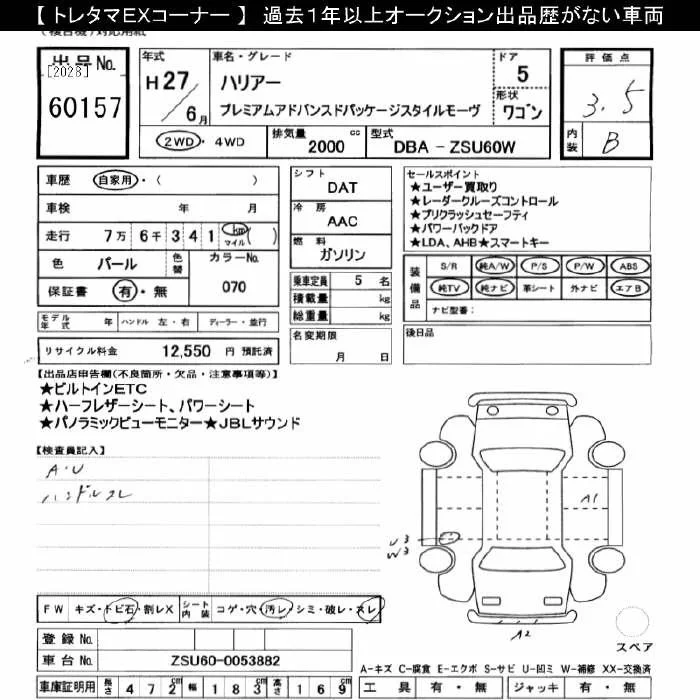 【 トレタマＥＸコーナー 】 過去１年以上オークション出品歴がない車両
出品No.
[2028]
60157
年式
H27/6月
車名・グレード
ハリアー
プレミアムアドバンスドパッケージスタイルモーヴ
ドア
5
形状
ワゴン
評価点
3.5
内装
B
2WD・4WD
排気量
2000 cc
型式
DBA - ZSU60W
車歴 自家用・( )
車検 年 月
走行 7万 6千 3 4 1 km マイル ( )
色 パール 色替 カラーNo. 070
保証書 有・無
モデル年式 年 ハンドル 左・右 ディーラー・並行
リサイクル料金 12,550 円 預託済
シフト
DAT
冷房
AAC
燃料
ガソリン
乗車定員 5 名
積載量 kg
総重量 kg
名変期限
月 日
セールスポイント
★ユーザー買取り
★レーダークルーズコントロール
★プリクラッシュセーフティ
★パワーバックドア
★LDA、AHB★スマートキー
装備品
S/R 純A/W P/S P/W ABS
純TV 純ナビ 革シート 外ナビ エアB
ナビ型番：
後日品
【出品店申告欄(不良箇所・欠品・注意事項等)】
★ビルトインETC
★ハーフレザーシート、パワーシート
★パノラミックビューモニター★JBLサウンド
【検査員記入】
A・U
ハンドルスレ
A1
U3
W3
A2
スペア
FW キズ・トビ石・割レX シート内装 コゲ・穴・汚レ・シミ・破レ・スレ
登録No.
車台No. ZSU60-0053882
車庫証明用 長さ 4 7 2cm 幅 1 8 3cm 高さ 1 6 9cm
A-キズ C-腐食 E-エクボ S-サビ U-凹ミ W-補修 XX-交換済
工具 有・無 ジャッキ 有・無